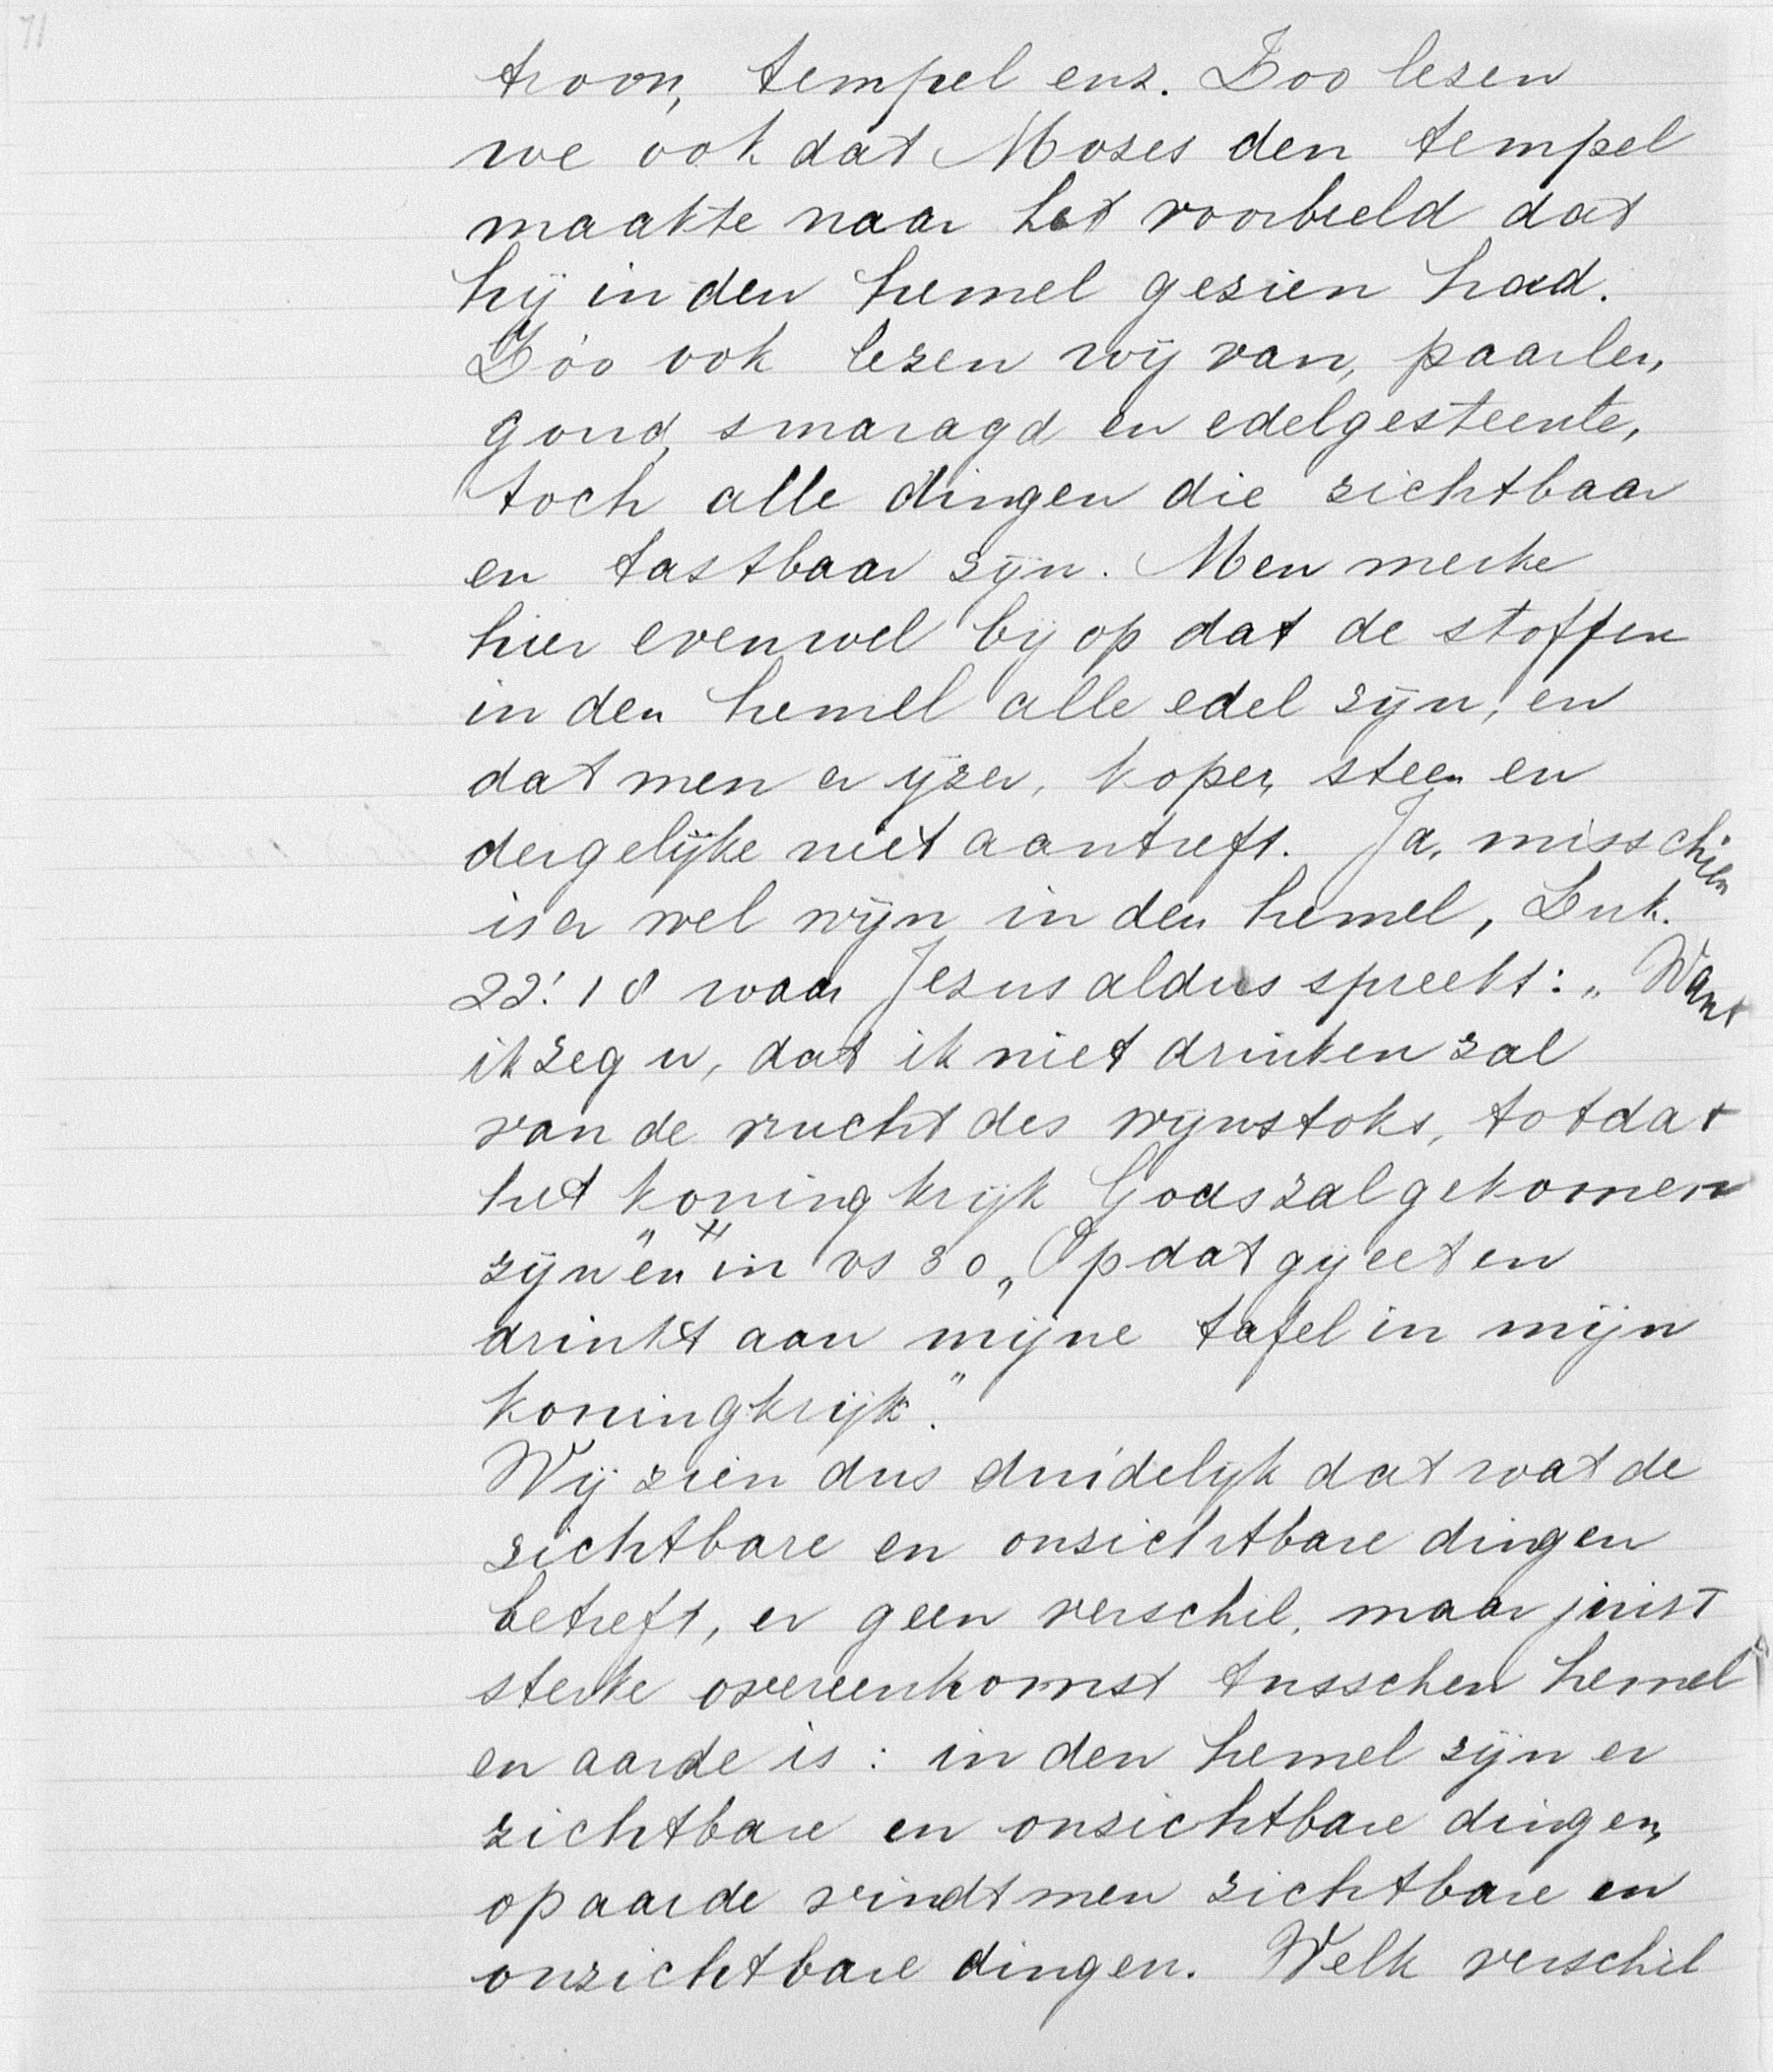 71
troon, tempel enz. Zoo lezen
we ook dat Mozes den tempel
maakte naar het voorbeeld dat
hij in den hemel gezien had.
Zóo ook lezen wij van, paarlen,
goud, smaragd en edelgesteente,
toch alle dingen die zichtbaar
en tastbaar zijn. Men merke
hier evenwel bij op dat de stoffen
in den hemel alle edel zijn, en
dat men er ijzer, koper, steen en
dergelijke niet aantreft. Ja, misschien
is er wel wijn in den hemel, Luk.
22:18 waar Jezus aldus spreekt: „Want
ik zeg u, dat ik niet drinken zal
van de vrucht des wijnstoks, totdat
het koningkrijk Gods zal gekomen
zijn" en in vs 30 „Opdat gij eet en
drinkt aan mijne tafel in mijn
koningkrijk."
Wij zien dus duidelijk dat wat de
zichtbare en onzichtbare dingen
betreft, er geen verschil, maar juist
sterke overeenkomst tusschen hemel
en aarde is: in den hemel zijn er
zichtbare en onzichtbare dingen,
op aarde vindt men zichtbare en
onzichtbare dingen. Welk verschil